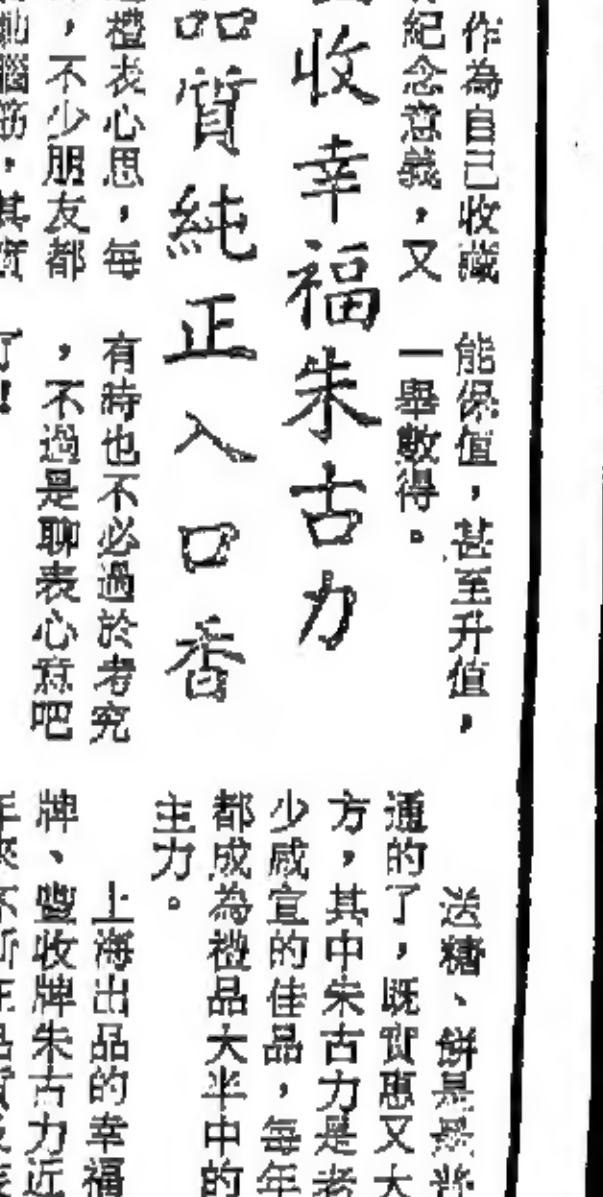 作為自己收藏
紀念意義，又
能保值，甚至升值，
一舉數得。
收幸福朱古力
品質純正入口香
禮表心思，每
，不少朋友都
腦筋，其實
有時也不必過於考究
，不過是聊表心意吧
了！
送糖、餅是最普
通的了，既實惠又大
方，其中朱古力是老
少咸宜的佳品，每年
都成為禮品大半中的
主力。
上海出品的幸福
牌、豐收牌朱古力近
年來不斷在品質